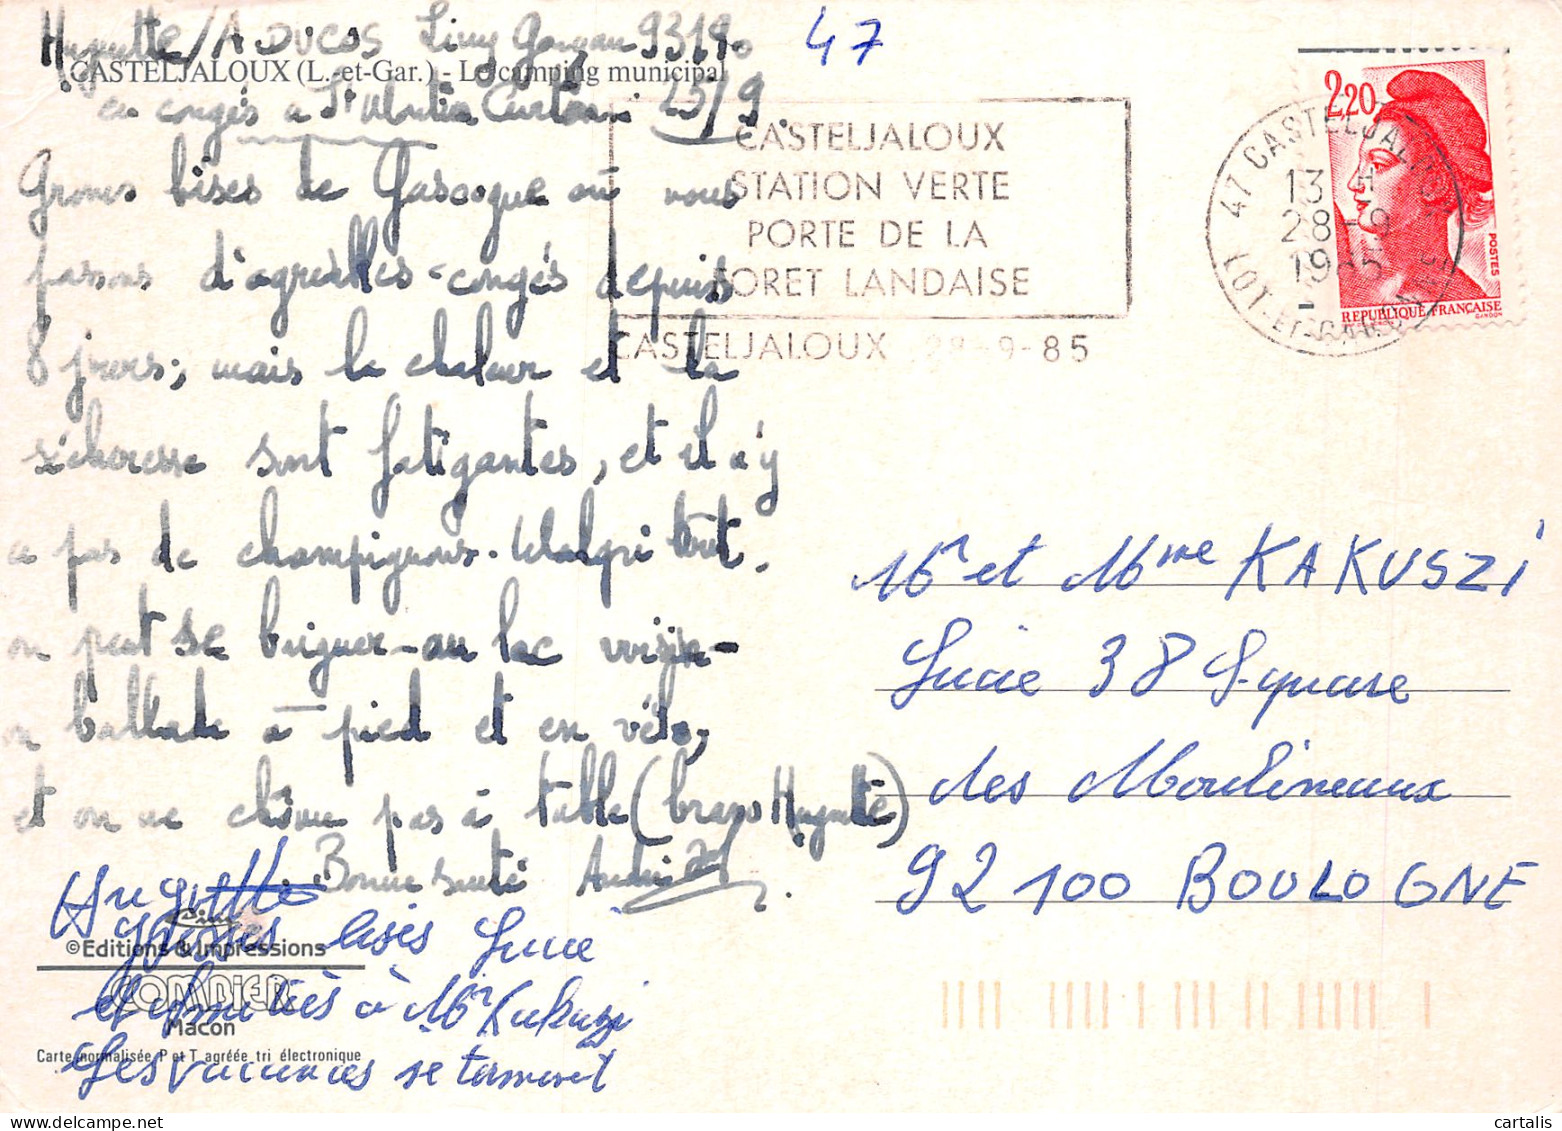 Huguette / A DUCOS Livry Gargan 93190
47
CASTELJALOUX (L.-et-Gar.) - Le camping municipal
en congés à St Martin Curton 25/9.
Grosses bises de Gascogne où nous
passons d'agréables congés depuis
8 jours; mais la chaleur et la
sécheresse sont fatigantes, et il n'y
a pas de champignons. Malgré tout.
on peut se baigner au lac voisin -
on ballade à pied et en vélo,
et on ne chôme pas à table (bravo Huguette)
Bonne santé André
Huguette
Grosses bises Lucie
et amitiés à Mr Kakuszi
Les vacances se terminent
Cim
©Editions & Impressions
COMBIER
Macon
Carte normalisée P et T agréée tri électronique
CASTELJALOUX
STATION VERTE
PORTE DE LA
FORET LANDAISE
CASTELJALOUX 28-9-85
47 CASTELJALOUX
13 H
28-9
1985
LOT-ET-GARONNE
2,20
POSTES
REPUBLIQUE FRANÇAISE
GANDON
Mr et Mme KAKUSZi
Lucie 38 Square
des Moulineaux
92100 BOULOGNE